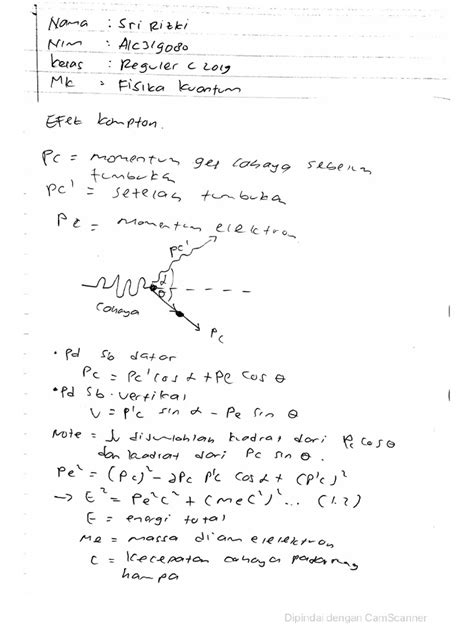 Nama : Sri Rizki
Nim : A1C319080
kelas : Reguler C 2019
Mk : Fisika Kuantum
Efek kompton.
Pc = momentum gel cahaya sebelum
tumbukan
Pc' = setelah tumbukan
Pe = momentum elektron
Pc'
α
θ
cahaya
Pc
• Pd sb datar
Pc = Pc' cos α + Pe cos θ
• Pd sb. vertikal
0 = P'c sin α - Pe sin θ
Note = dijumlahkan kuadrat dari Pc cos θ
dan kuadrat dari Pc sin θ.
Pe² = (Pc)² - 2Pc P'c cos α + (P'c)²
→ E² = Pe²c² + (mec²)² ... (1.2)
E = energi total
Me = massa diam elelektron
C = kecepatan cahaya pada
hampa
Dipindai dengan CamScanner